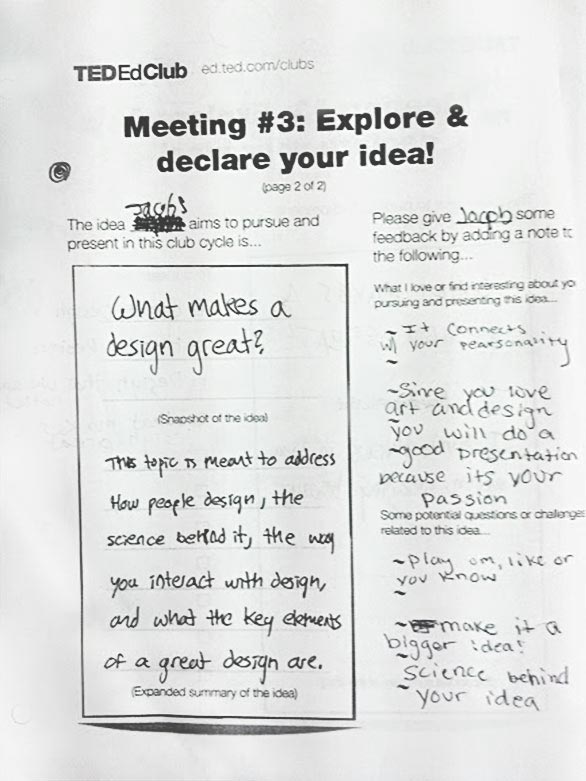 TEDEdClub ed.ted.com/clubs
Meeting #3: Explore &
declare your idea!
(page 2 of 2)
Jacob's
The idea aims to pursue and
present in this club cycle is...
What makes a
design great?
(Snapshot of the idea)
This topic is meant to address
How people design, the
science behind it, the way
you interact with design,
and what the key elements
of a great design are.
(Expanded summary of the idea)
Please give Jacob some
feedback by adding a note to
the following...
What I love or find interesting about yo
pursuing and presenting this idea...
~It connects
w/ your pearsonality
~
~Sinve you love
art and design
~you will do a
~good presentation
because its your
passion
Some potential questions or challenges
related to this idea...
~Play um, like or
you know
~
~make it a
bigger idea!
~
science behind
~your idea